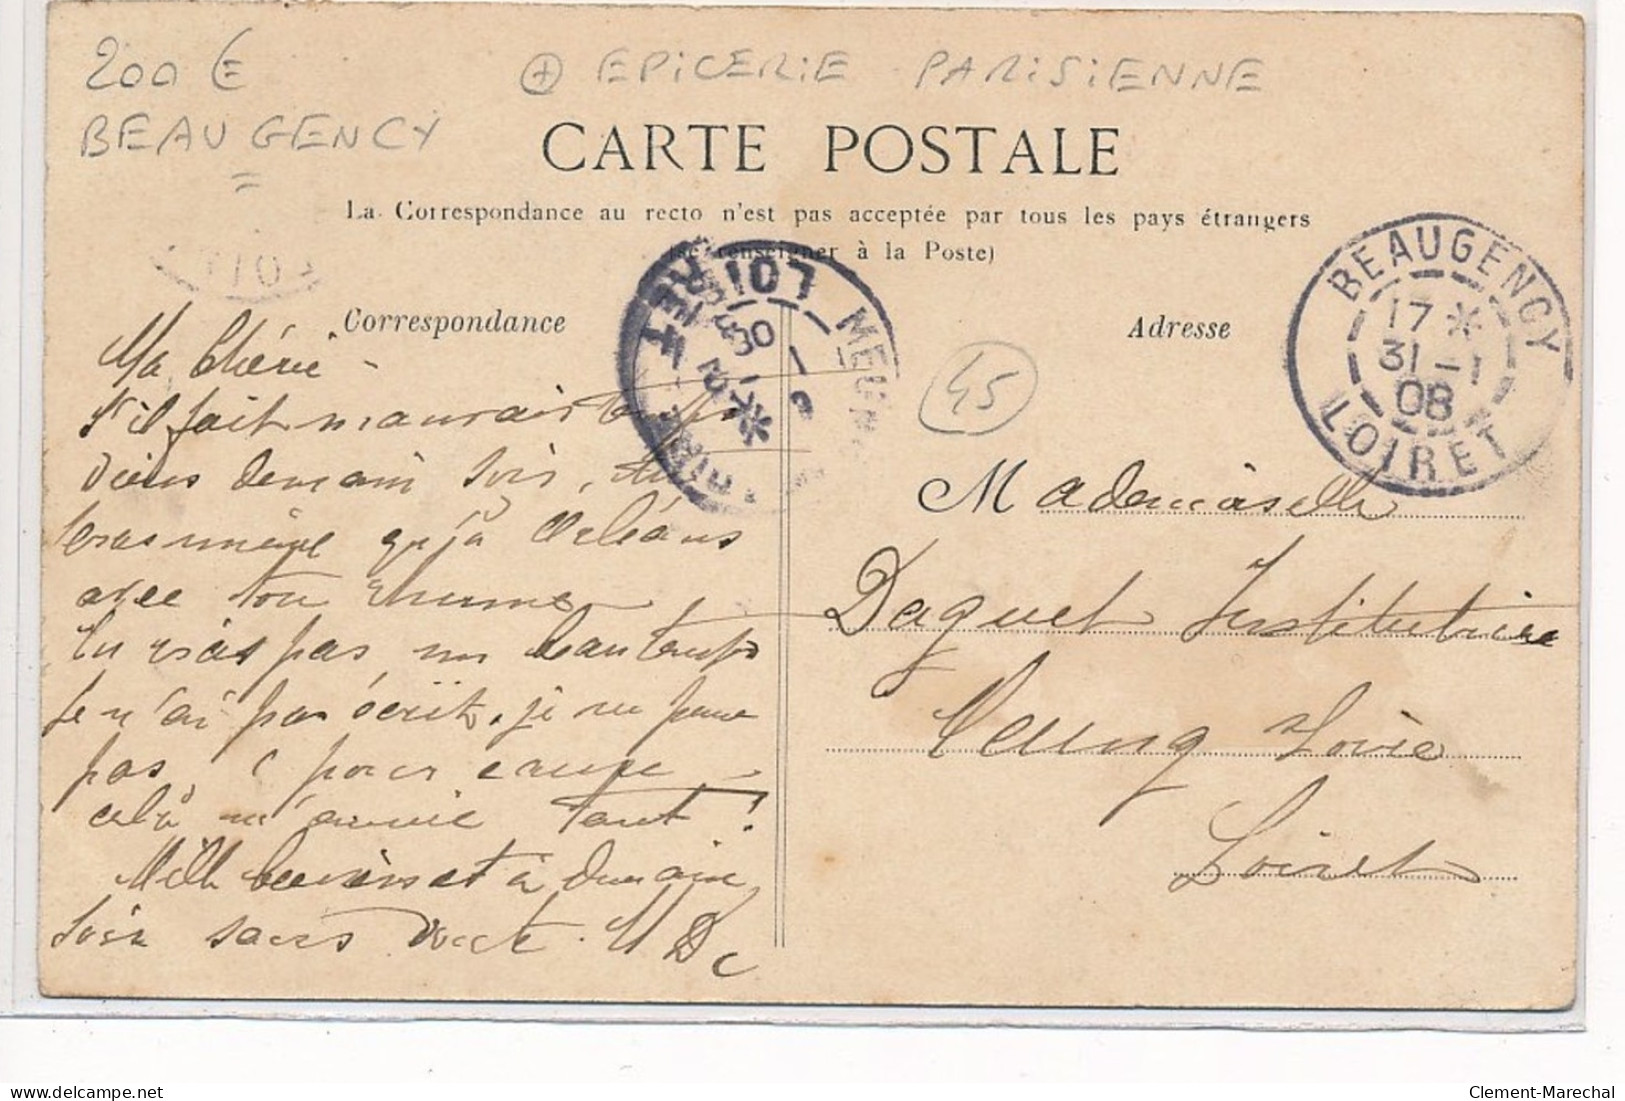 200 €
⊕ EPICERIE PARISIENNE
BEAUGENCY
CARTE POSTALE
La Correspondance au recto n'est pas acceptée par tous les pays étrangers
(Se renseigner à la Poste)
Correspondance
Ma Chérie -
S'il fait mauvais temps
viens demain soir, tu
seras mieux qu'à Orléans
avec ton rhume,
tu vois pas un beau temps
Je n'ai pas écrit, je ne peux
pas, pour
celà m'ennuie tant!
Mille baisers et à demain
soir sans doute. M D
LOIRET
MEUNG
BEAUGENCY
17 *
31 - 1
08
LOIRET
Adresse
45
Mademoiselle
Daguet Institutrice
Meung s/ Loire
Loiret
200€
Clement-Marechal